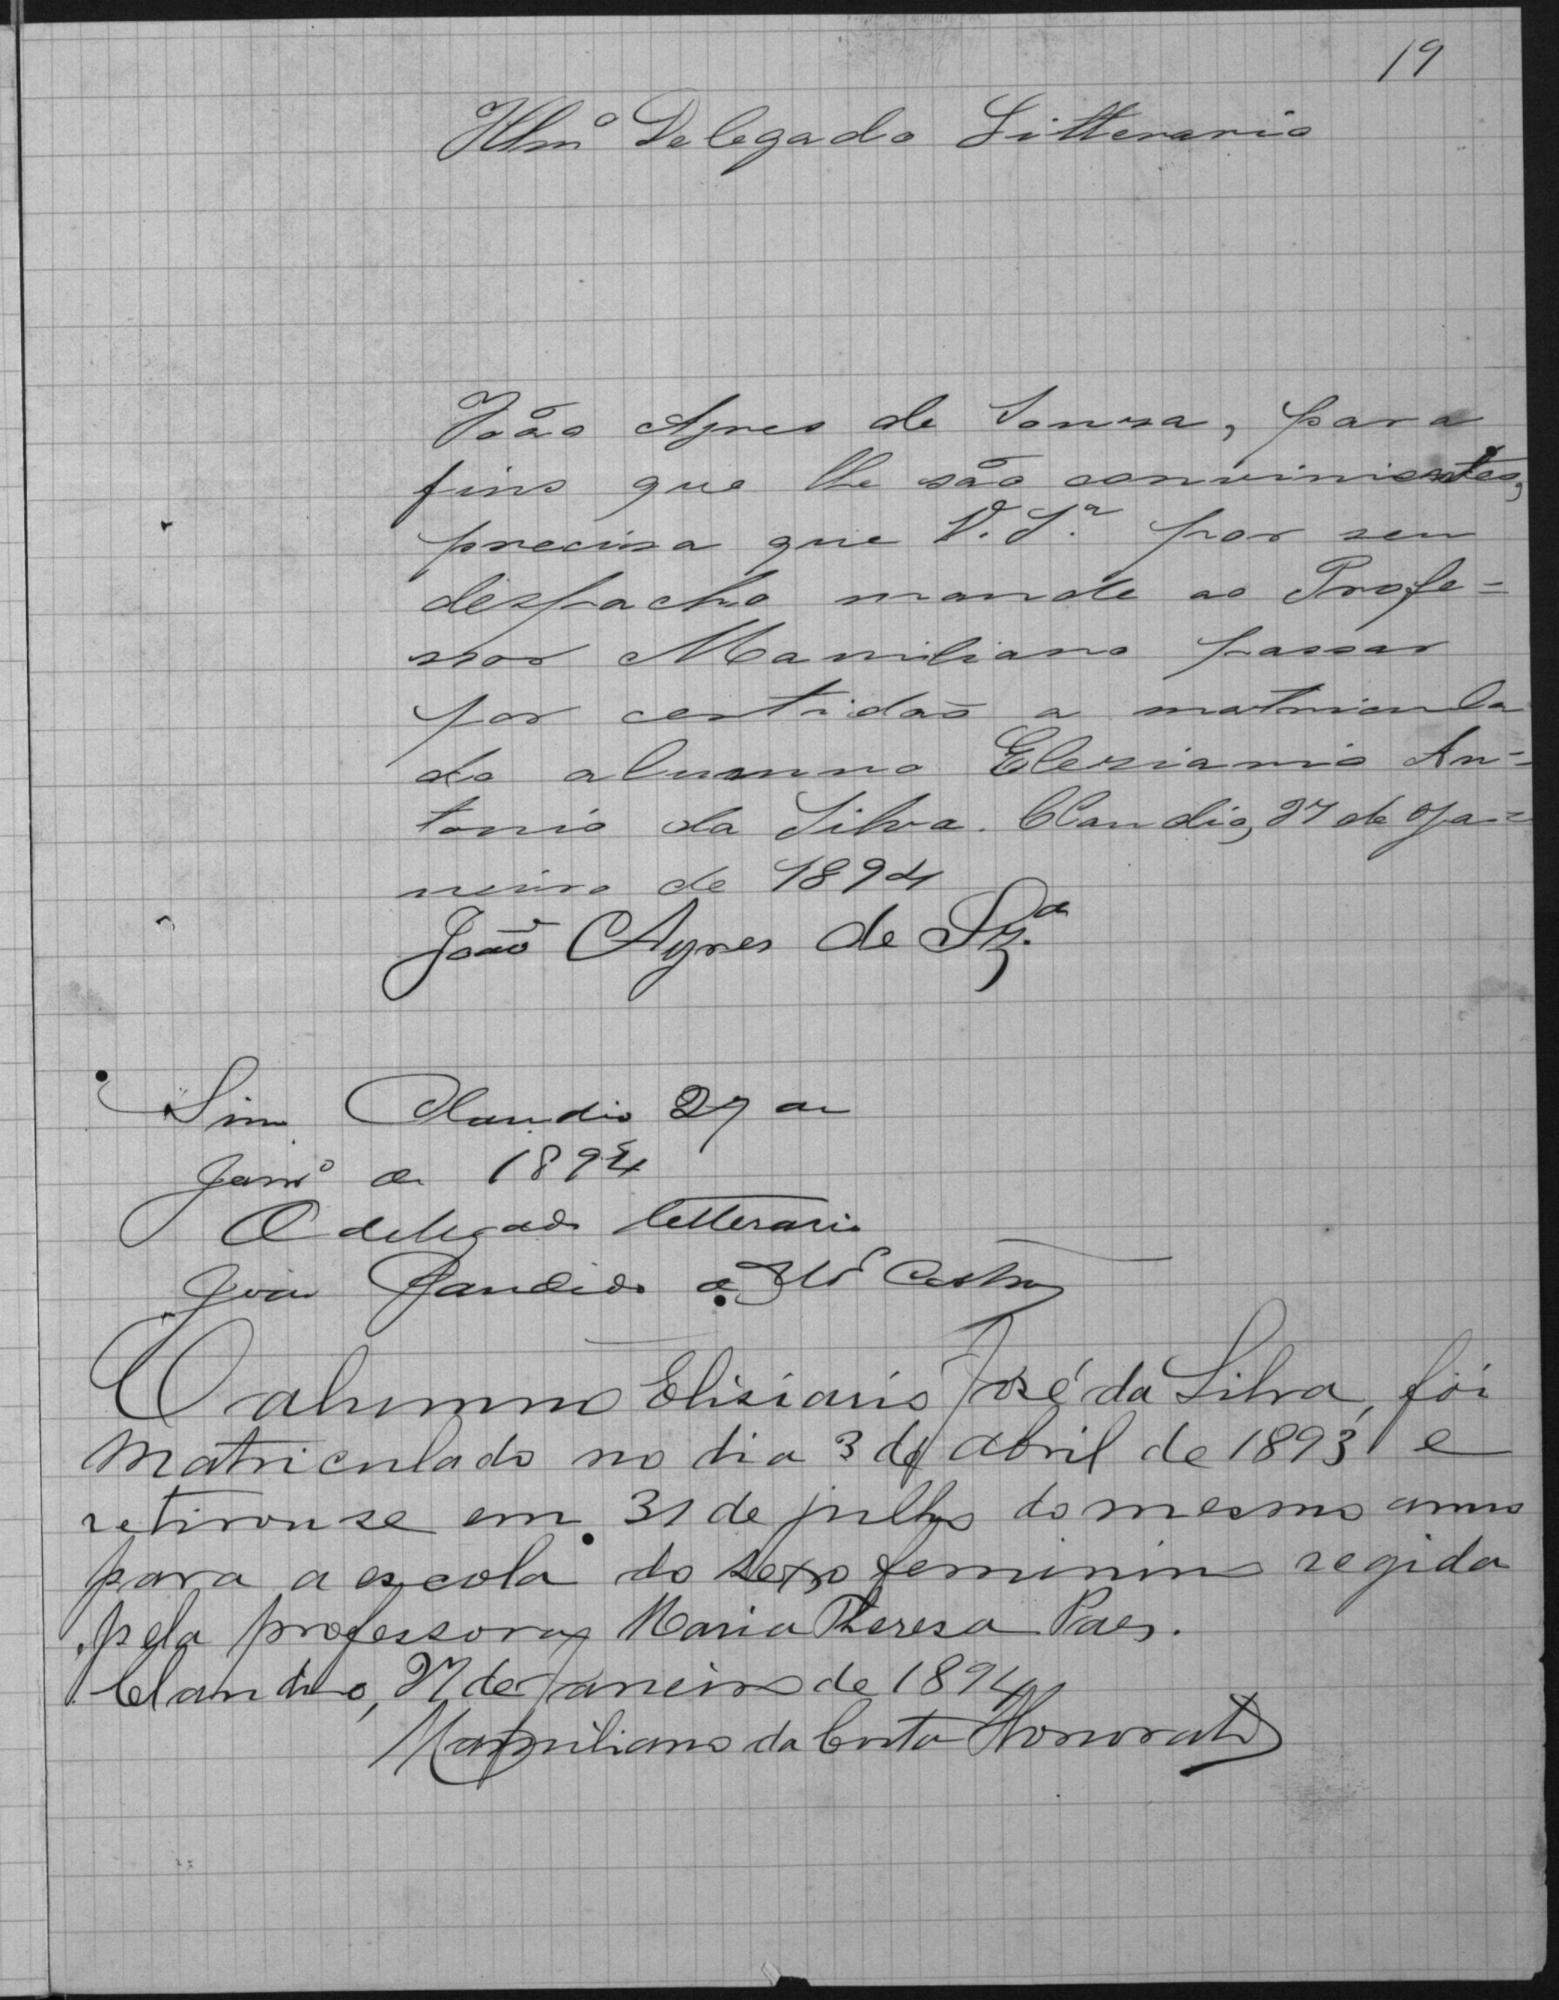 19
Illmº Delegado Litterario
João Ayres de Sousa, para
fins que lhe são convinientes,
precisa que V. Sª. por seu
despacho mande ao Profe=
ssor Maximiliano passar
por certidão a matricula
do alumno Elesiario An=
tonio da Silva. Claudio, 27 de Ja=
neiro de 1894
João Ayres de Sz.ª
Sim Claudio 27 de
Janrº de 1894
O delegado letterario
João Candido de Castro
O alumno Elisiario José da Silva, foi
matriculado no dia 3 de abril de 1893 e
retirou se em 31 de julho do mesmo anno
para a escola do sexo feminino regida
pela professora Maria Theresa Paes.
Claudio, 27 de Janeiro de 1894
Maximiliano da Costa Honorato